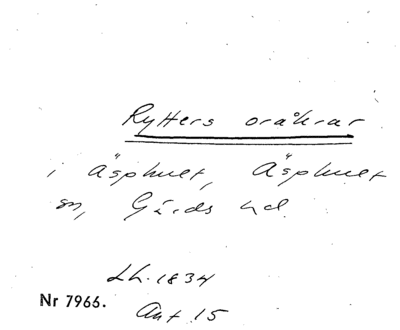 Rytters oråkrar
i Äsphult, Äsphult
sn, Gärds hd.
Lh. 1834
Nr 7966.
Ant 15